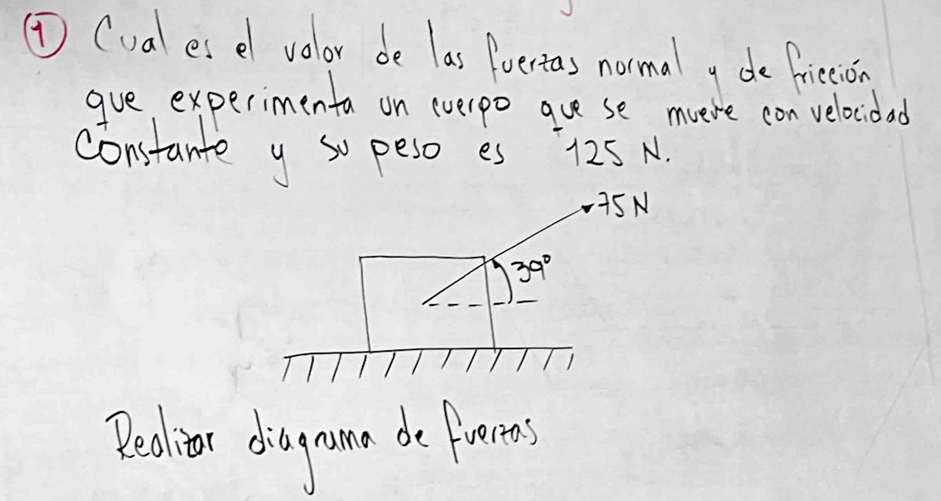 1 Cual es el valor de las fuerzas normal y de fricción
que experimenta un cuerpo que se mueve con velocidad
Constante y su peso es 125 N.
75 N
39°
Realizar diagrama de fuerzas